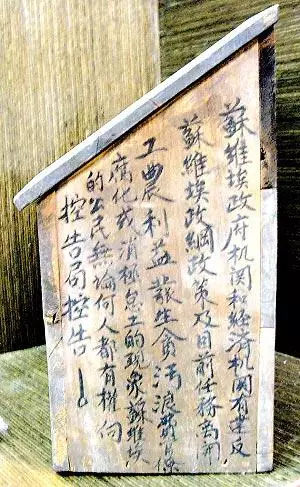 蘇維埃政府机関和經済机関有違反
蘇維埃政綱政策及目前任務离開
工農利益發生貪污浪費官僚
腐化或消極怠工的現象蘇維埃
的公民無論何人都有權向
控告局控告